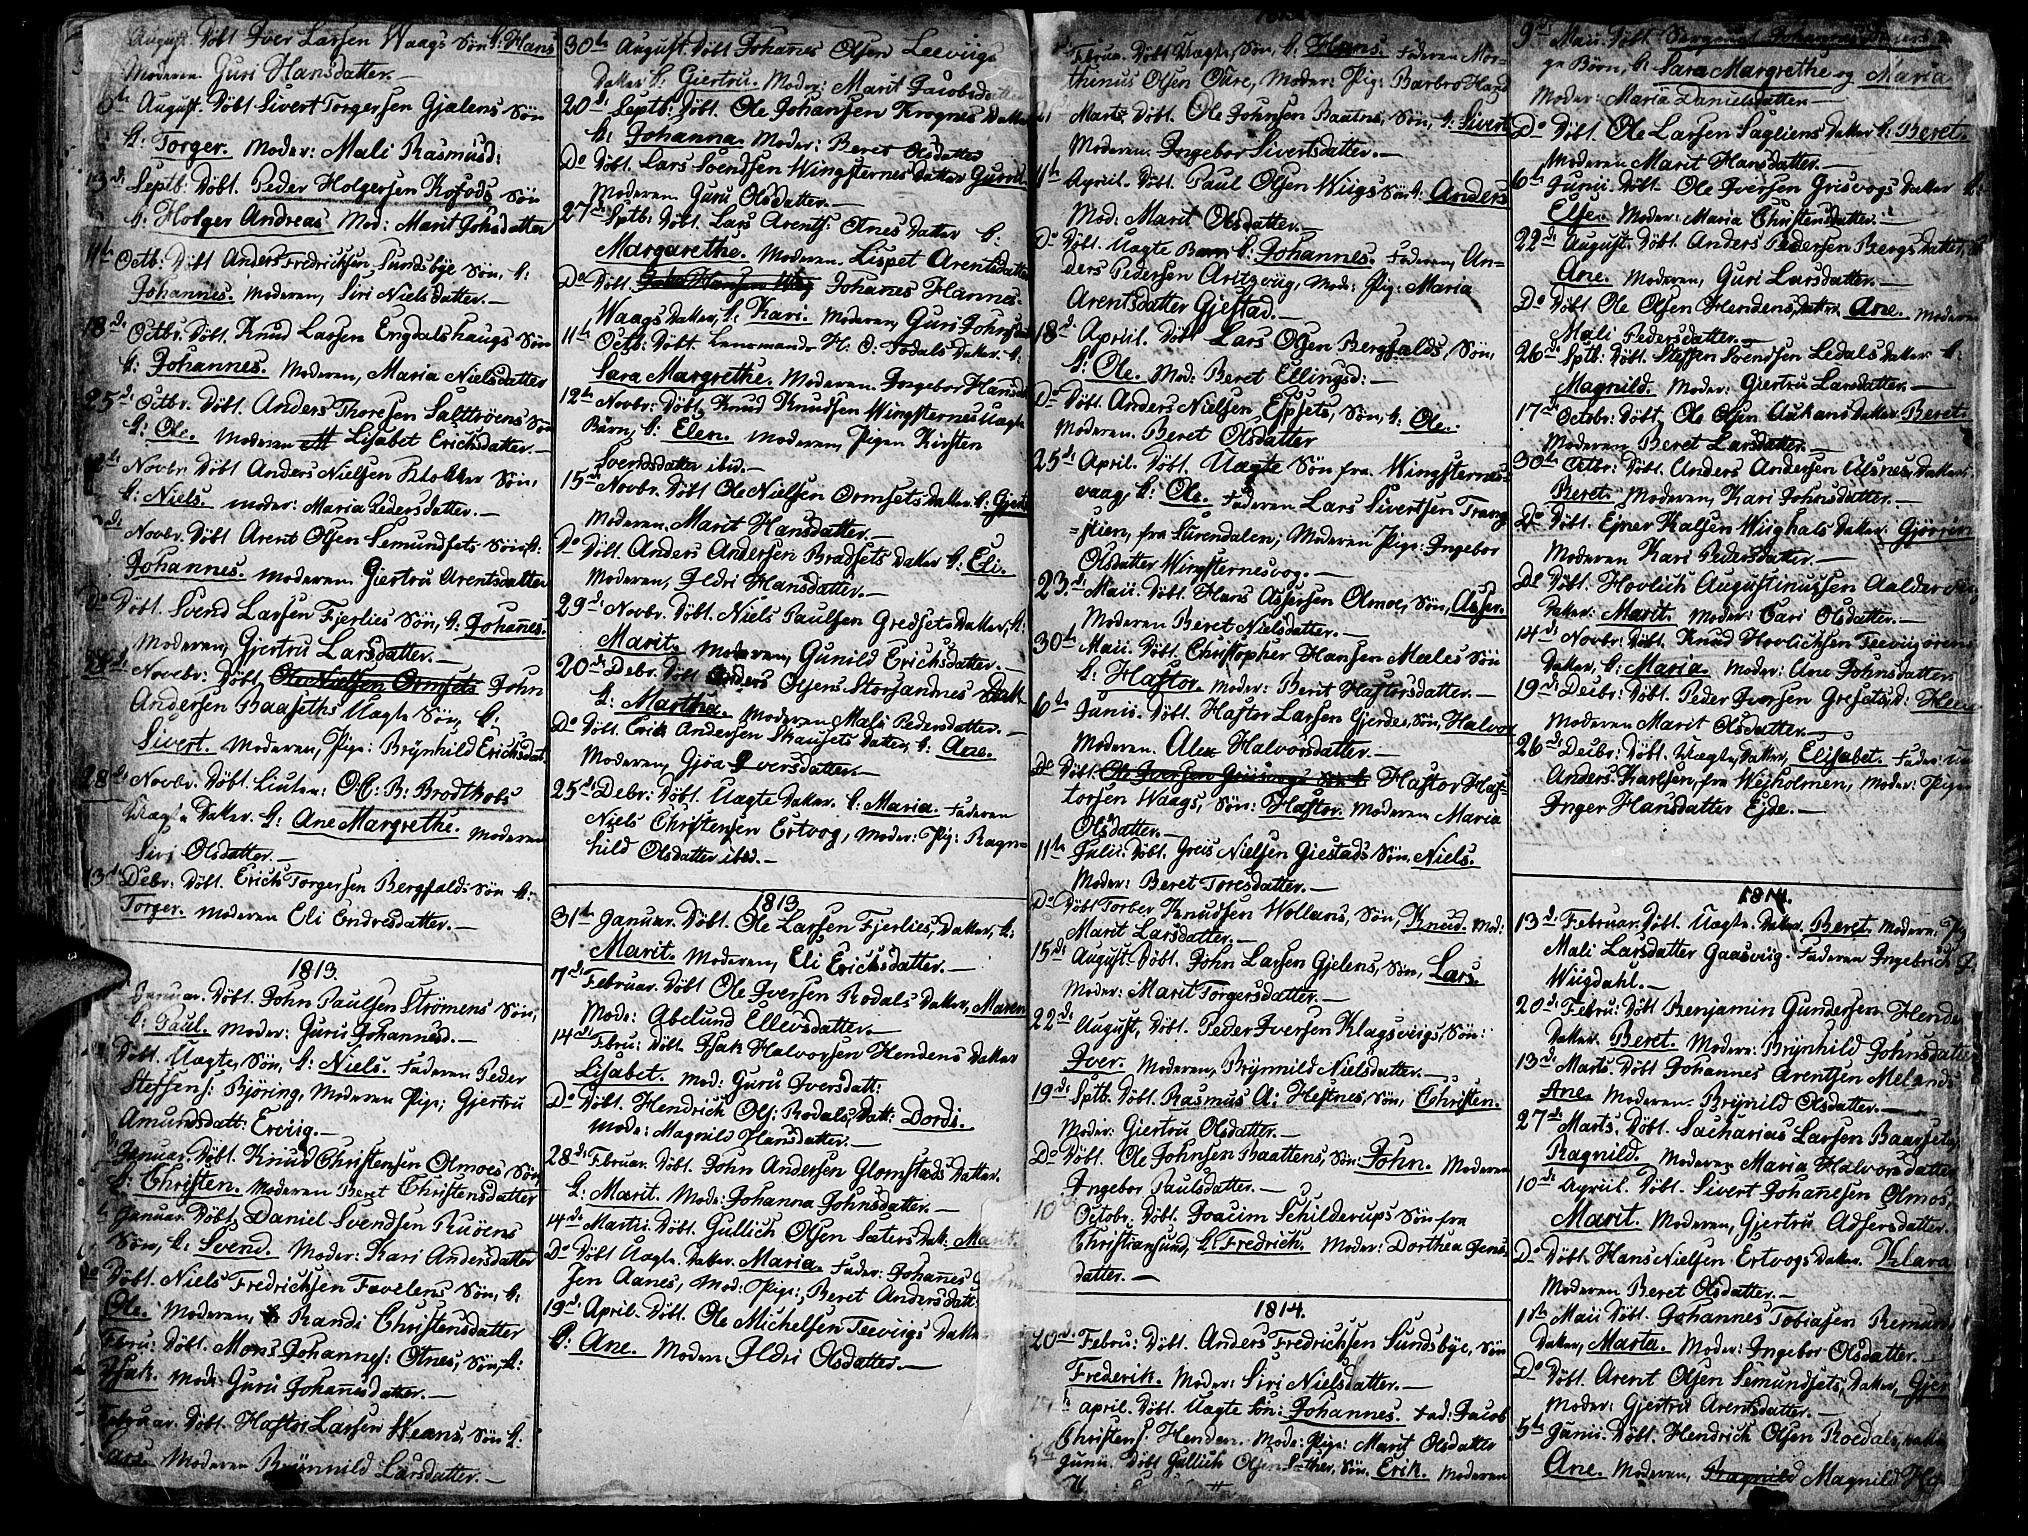 August. Döbt Iver Larsen Waags Søn k: Hans
Moderen. Guri Hansdatter.—
6th August. Döbt Sivert Torgersen Gjelens Søn
k: Torger. Moder: Mali Rasmusd:
13d: Septb: Döbt. Peder Holgersen Kofods Søn
k: Holger Andreas. Mod: Marit Johsdatter
11th Octb: Döbt Anders Fredrichsen Sundsbye Søn, k:
Johannes. Moderen, Siri Nielsdatter.—
18d: Octbr. Döbt. Knud Larsen Engdalshaugs Søn
k: Johannes. Moderen, Maria Nielsdatter
25d: Octbr. Döbt. Anders Thoresen Salttrøens Søn
k: Ole. Moderen Lisabet Erichsdatter.—
Novbr. Döbt Anders Nielsen Klokker Søn,
k: Niels. moder: Maria Pedersdatter.—
Novbr. Döbt Arent Olsen Semundsets Søn k:
Johannes. Moderen. Giertru Arentsdatter
Do Döbt. Svend Larsen Fjerlies Søn, k: Johanes.
Moderen, Gjertru Larsdatter.—
Novebr: Döbt. Ole Nielsen Ormsets John
Andersen Baaseths Uægte Søn, k:
Sivert. Moderen, Pige: Brÿnhild Erichsdat.
28d: Novbr. Döbt. Liuten: O.C: B: Brodtkobs
Uægte Datter. k: Ane Margrethe. Moderen
Siri Olsdatter.—
13d. Debr: Döbt. Erich Torgersen Bergfalds Søn k:
Torger. Moderen Eli Endresdatter.—
1813.
Januar. Döbt. John Paulsen Strömens Søn,
k: Paul. Moder: Guru Johannesd.—
Döbt. Uægte, Søn, k: Niels. Faderen Peder
Steffens: Björing, Moderen Pige; Gjertru
Amundsdatt: Ervig.—
Januar. Döbt. Knud Christensen Olmoes Søn
k: Christen. Moderen Beret Christensdatter
Januar. Döbt. Daniel Svendsen Ruöens
Søn, k: Svend. Moder: Kari Andersdatter
Do Döbt. Niels Fredrichsen Favelens Søn, k:
Ole. Moderen, Randi Christensdatter
Febru: Döbt. Mons Johannes: Otnes, Søn, k:
Isak. Mod: Guru Johannesdatter.—
Februar. Döbt. Hastor Larsen Søn k:
Lars. Moderen Brÿnnild Larsdatter.—
30th August. Döbt Johanes Olsen Leeviigs
Datter k: Giertru. Moder: Marit Jacobsdatter
20d: Septb: Döbt. Ole Johansen Krognes Datter
k: Johanna. Moder: Beret Olsdatter
Do Döbt. Lars Svendsen Wingsternes Datter Guru
Moderen. Guru Olsdatter.—
27d: Sptb: Döbt. Lars Arents: Otnes Datter k:
Margarethe. Moderen. Lispet Arentsdatter
Do Döbt. Johanes Hannes
Waags Datter, k: Kari. Moderen, Guri Johnsdatter
11th Octb: Döbt. Lensmands H: O: Todals Datter. k:
Sara Margrethe. Moderen. Ingebor Hansdatt
12th Novbr: Döbt. Knud Knudsen Wingsternes Uægte
Barn, k: Elen. Moderen, Pigen Kirsten
Svendsdatter ibid.—
15d: Novbr. Döbt Ole Nielsen Ormsets Datter. k: Gjert
Moderen. Marit Hansdatter.—
Do Döbt. Anders Andersen Bradsets Datter k: Eli.
Moderen, Ildri Hansdatter.—
29d: Novbr. Döbt. Niels Paulsen Gredsets Datter, k:
Marit. Moderen, Gunild Erichsdatter.—
20d: Debr. Döbt Anders Olsens Storsandnes Datt
k: Martha. Moderen Mali Pedersdatter.—
Do Döbt. Erik Andersen Skausets Datter, k: Ane.
Moderen, Gjöa Iversdatter.—
25d: Debr: Döbt. Uægte Datter. k: Maria. Faderen
Niels Christensen Ertvog, Moder: Pig: Ragn=
hild Olsdatter ibid.—
1813
31th Januar. Döbt. Ole Larsen Fjerlies, Datter, k:
Marit. Moderen, Eli Erichsdatter.—
7d: Februar. Döbt Ole Iversen Rodals Datter, Maren
Mod: Abelund Ellevsdatter.—
14d: Febru: Döbt. Isak Halvorsen Hendens Datter
Lisabet. Mod: Guru Iversdatt:
Do Döbt. Hendrich Ols: Rodals, Datt: Dordi.
Mod: Magnild Hansdatter.—
28d: Februar. Döbt. John Andersen Glomstads Datter.
k: Marit. Mod: Johanna Johnsdatter.—
14d: Martii. Döbt. Gullich Olsen Sæters Datt: Marit.
Do Döbt Uægte. Datter. Maria. Fader: Johanes
sen Aanes, Mod: Pige: Beret Andersdatt.
19d: April. Döbt. Ole Michelsen Teevigs Datter
k: Ane. Moder. Ildri Olsdatter.—
Februar. Döbt Uægte, Søn, k: Hans. Faderen Mor-
thinus Olsen Oure, Moder: Pig: Barbro Hans
21 Marts. Döbt. Ole Johnsen Baatnes, Søn, k: Sivert
Moderen. Ingebor Sivertsdatter.—
11th April. Döbt. Paul Olsen Wiigs Søn k: Anders
Mod: Marit Olsdatter.
Do Döbt. Uægte Barn k: Johannes. Faderen, An-
ders Pedersen Aritzvug, Mod: Pig: Maria
Arentsdatter Gjestad.—
18d. April. Döbt Lars Olsen Bergfalds, Søn,
k: Ole. Mod: Beret Ellingsd:—
Do Döbt. Anders Nielsen Espsets, Søn, k: Ole.
Moderen. Beret Olsdatter
25d: April. Döbt. Uægte Søn fra Wingsternes=
vaag, k: Ole. Faderen Lars Sivertsen Trang
=slien, fra Surendalen; Moderen Pige: Ingebor
Olsdatter Wingsternesvog.—
23d: Maii. Döbt. Hans Assersen Olmoe, Søn, Asser.
Moderen Beret Nielsdatter.—
30th Maii. Döbt. Christopher Hansen Mæles Søn
k: Hastor. Moder: Berit Hastorsdatter.—
6th Junii. Döbt. Hastor Larsen Gjerdes, Søn, Halvor
Moderen. Alex Halvorsdatter.—
Do Döbt. Ole Iversen Griisvogs Søn k: Hastor Has-
torsen Waags, Søn: Hastor. Moderen, Maria
Olsdatter.—
11th Julii. Döbt. Greis Nielsen Giestads Søn, Niels.
Moder: Beret Toresdatter.—
Do Döbt Torber Knudsen Wollans, Søn, Knud. Mod:
Marit Larsdatter.—
15d: August. Döbt. John Larsen Gjelens, Søn, Lars.
Moder: Marit Torgersdatter.—
22d: August, Döbt. Peder Iversen Klagsvigs, Søn:
Iver. Moderen, Brÿnnild Nielsdatter.—
19d: Sptb. Döbt. Rasmus A: Hestnes, Søn, Christen.
Moder: Giertru Olsdatter.—
Do Döbt. Ole Johnsen Baattens, Søn. John. Moderen
Ingebor Paulsdatter.—
10 Octobr. Döbt. Joacim Schilderups Søn fra
Christiansund, k: Fredrich. Moder: Dorthea Jens
datter.—
1814.
20d. Febru. Döbt. Anders Fredrichsen Sundsbÿe, Søn
Frederik. Moder: Siri Nielsdatter.—
april. Döbt. Uægte Søn: Johannes. Fad: Jacob
Christens. Henden. Mod: Pige: Marit Olsdatter
5th Junii. Döbt Gullich Olsen Søn, Erik. Moderen
9d: Maii. Döbt Sergeant
ge Børn, k: Sara Margrethe og Maria
Moder: Maria Danielsdatter—
Do Döbt. Ole Larsen Sagliens Datter k: Beret.
Moderen Marit Hansdatter.—
6th Junii. Döbt. Ole Iversen Grisvogs Datter k:
Else. Moder: Maria Christensdatter.—
22d: August. Döbt. Anders Pedersen Bergs Datter k:
Ane. Moderen, Guri Larsdatter.—
Do Döbt Ole Olsen Hendens, Datter. Ane. Moderen
Mali Pedersdatter.—
26d: Sptb: Döbt. Steffen Svendsen Ledals Datter k:
Magnild. Moder: Gjertru Larsdatter.—
17d: Octobr: Döbt. Ole Olsen Aukans Datter. Beret.
Moderen. Beret Larsdatter.—
30th Octbr: Döbt. Anders Andersen Ulsnes, Datter.
Beret. Moderen, Kari Johnsdatter.—
Do Döbt. Ejner Kalsen Wiighals Datter. Gjörrön
Moderen Kari Pedersdatter.—
Do Döbt. Hovlich Augustinussen Aalder
Datter. Marit. Moder: Cari Olsdatter.—
14d: Novbr: Döbt. Knud Hovlichsen Teevigørens
Datter, k: Maria. Moder: Ane Johnsdatter
19d: Decbr: Döbt. Peder Iversen Gresets, D:
Moderen Marit Olsdatter.—
26d: Decbr: Döbt. Uægte, Datter, Elisabet. Fader:
Anders Karlsen, fra Wejholmen, Moder: Pigen
Inger Hansdatter Ejde.—
1814.
13d: Februar. Döbt. Uægte. Datter. Beret. Moderen: Pig
Mali Larsdatter Gaasviig. Faderen Ingebrich I:
Wiigdahl.—
20d: Febru: Döbt Benjamin Gundersen Henden
Datter. Beret. Moderen: Brÿnhild Johnsdatter
13d: Marts. Döbt Johannes Arentsen Melands
Ane. Moderen. Brÿnild Olsdatter.—
27d: Marts. Döbt. Sacharias Larsen Baarsets,
Ragnild. Moderen. Maria Halvorsdatter
10d: April. Döbt. Sivert Johanesen Olmos,
Marit. Moderen, Gjertru Adsersdatter.
Do Döbt. Hans Nielsen Ertvogs Datter. Klara
Moderen Beret Olsdatter.—
11th Maii Döbt. Johannes Tobiasen Remund
Datter, Marta. Moder: Ingebor Olsdatter.—
Do Döbt. Arent Olsen Semundsets, Datter, Gjer
Moder: Gjertru Arentsdatter.—
5th Junii. Döbt. Hendrich Olsen Roedals, Datter
Ane. Moderen, Ragnild Magnild